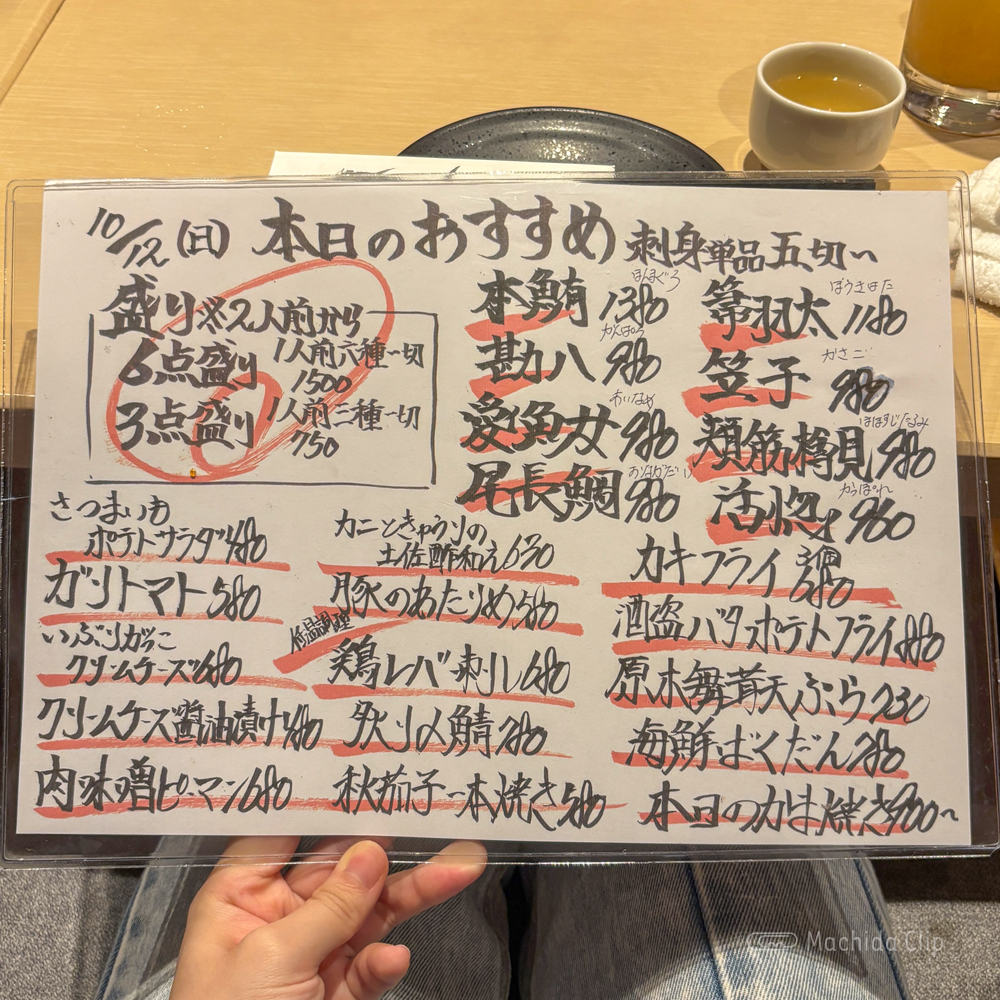 10/12(日) 本日のおすすめ 刺身単品五切〜
盛り※2人前から
6点盛り 1人前六種一切 1500
3点盛り 1人前三種一切 750
ほんまぐろ
本鮪 1380
かんぱち
勘八 980
あいなめ
愛魚女 980
おながだい
尾長鯛 980
ほうきはた
箒羽太 1180
かさご
笠子 980
ほほすじたるみ
頬筋樽見 980
かつぽれ
活惚れ 980
さつまいも
ポテトサラダ 480
ガリトマト 580
いぶりがっこ
クリームチーズ 680
クリームケーズ醤油漬け 480
肉味噌ピーマン 680
カニときゅうりの
土佐酢和え 630
豚のあたりめ 580
低温調理
鶏レバー刺し 680
炙り〆鯖 780
秋茄子一本焼き 580
カキフライ 3個 680
酒盗バタポテトフライ 880
原木舞茸天ぷら 730
海鮮ばくだん 780
本日のカマ焼き 900〜
Machida Clip